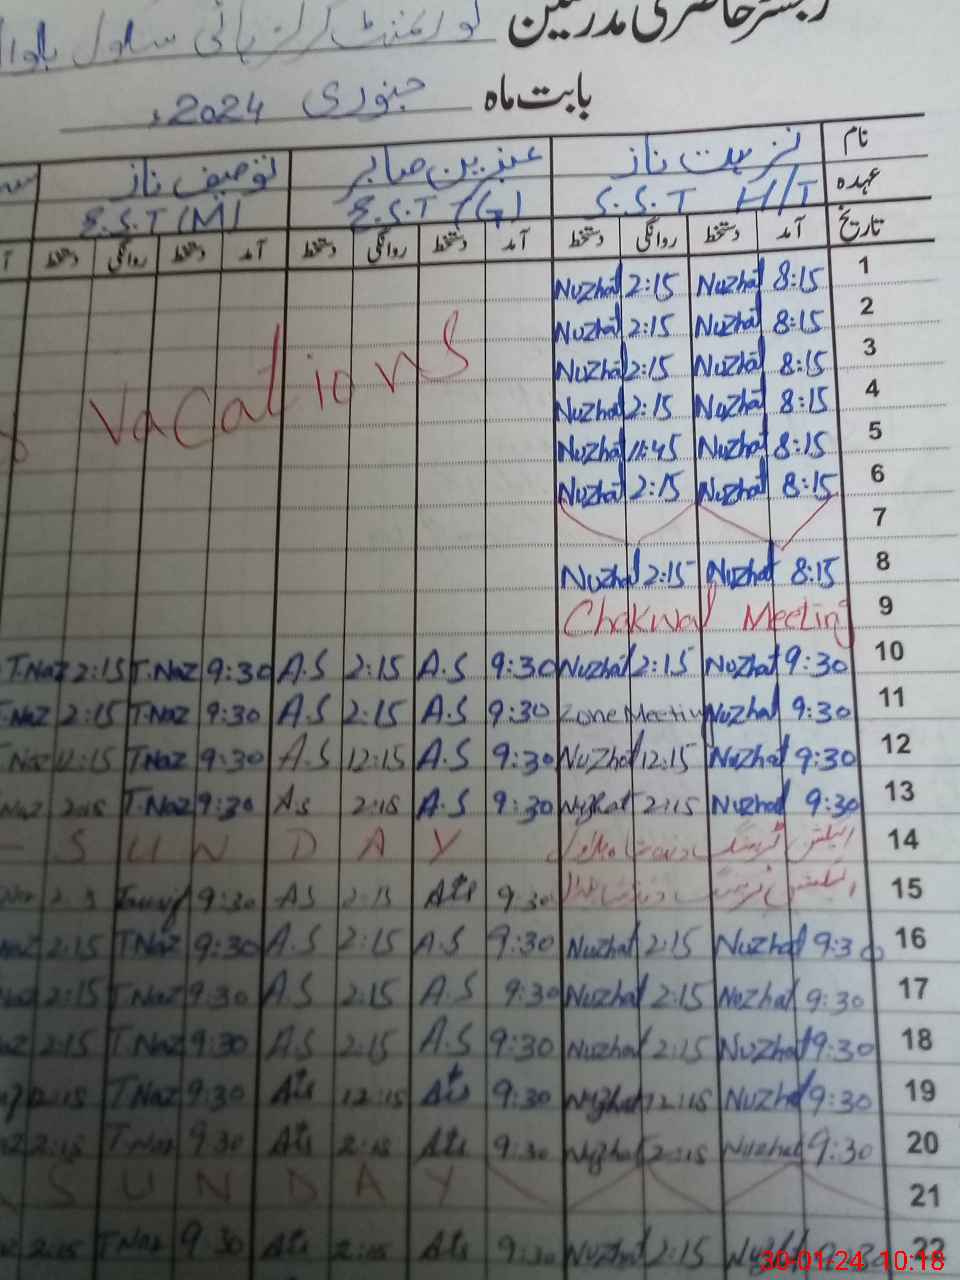 رجسٹر حاضری مدرسین گورنمنٹ گرلز ہائی سکول
بابت ماہ جنوری 2024ء
نام نزہت ناز عنبرین صابر توصیف ناز
عہدہ S.S.T H/T E.S.T (G) E.S.T (M)
تاریخ آمد دستخط روانگی دستخط آمد دستخط روانگی دستخط آمد دستخط روانگی دستخط
Nuzhat 2:15 Nuzhat 8:15 1
Nuzhat 2:15 Nuzhat 8:15 2
Nuzhat 2:15 Nuzhat 8:15 3
Vacations
Nuzhat 2:15 Nuzhat 8:15 4
Nuzhat 11:45 Nuzhat 8:15 5
Nuzhat 2:15 Nuzhat 8:15 6
7
Nuzhat 2:15 Nuzhat 8:15 8
Chakwal Meeting 9
T.Naz 2:15 T.Naz 9:30 A.S 2:15 A.S 9:30 Nuzhat 2:15 Nuzhat 9:30 10
T.Naz 2:15 T.Naz 9:30 A.S 2:15 A.S 9:30 Zone Meeting Nuzhat 9:30 11
Naz 12:15 T.Naz 9:30 A.S 12:15 A.S 9:30 Nuzhat 12:15 Nuzhat 9:30 12
Naz 2:15 T.Naz 9:30 A.S 2:15 A.S 9:30 Nuzhat 2:15 Nuzhat 9:30 13
SUNDAY الیکشن ٹریننگ 14
9:30 AS 2:15 9:30 الیکشن ٹریننگ 15
Naz 2:15 T.Naz 9:30 A.S 2:15 A.S 9:30 Nuzhat 2:15 Nuzhat 9:30 16
Naz 2:15 T.Naz 9:30 A.S 2:15 A.S 9:30 Nuzhat 2:15 Nuzhat 9:30 17
2:15 T.Naz 9:30 A.S 2:15 A.S 9:30 Nuzhat 2:15 Nuzhat 9:30 18
12:15 T.Naz 9:30 12:15 9:30 Nuzhat 12:15 Nuzhat 9:30 19
2:15 T.Naz 9:30 2:15 9:30 Nuzhat 2:15 Nuzhat 9:30 20
SUNDAY 21
2:15 T.Naz 9:30 2:15 9:30 Nuzhat 2:15 22
30-01-24 10:18